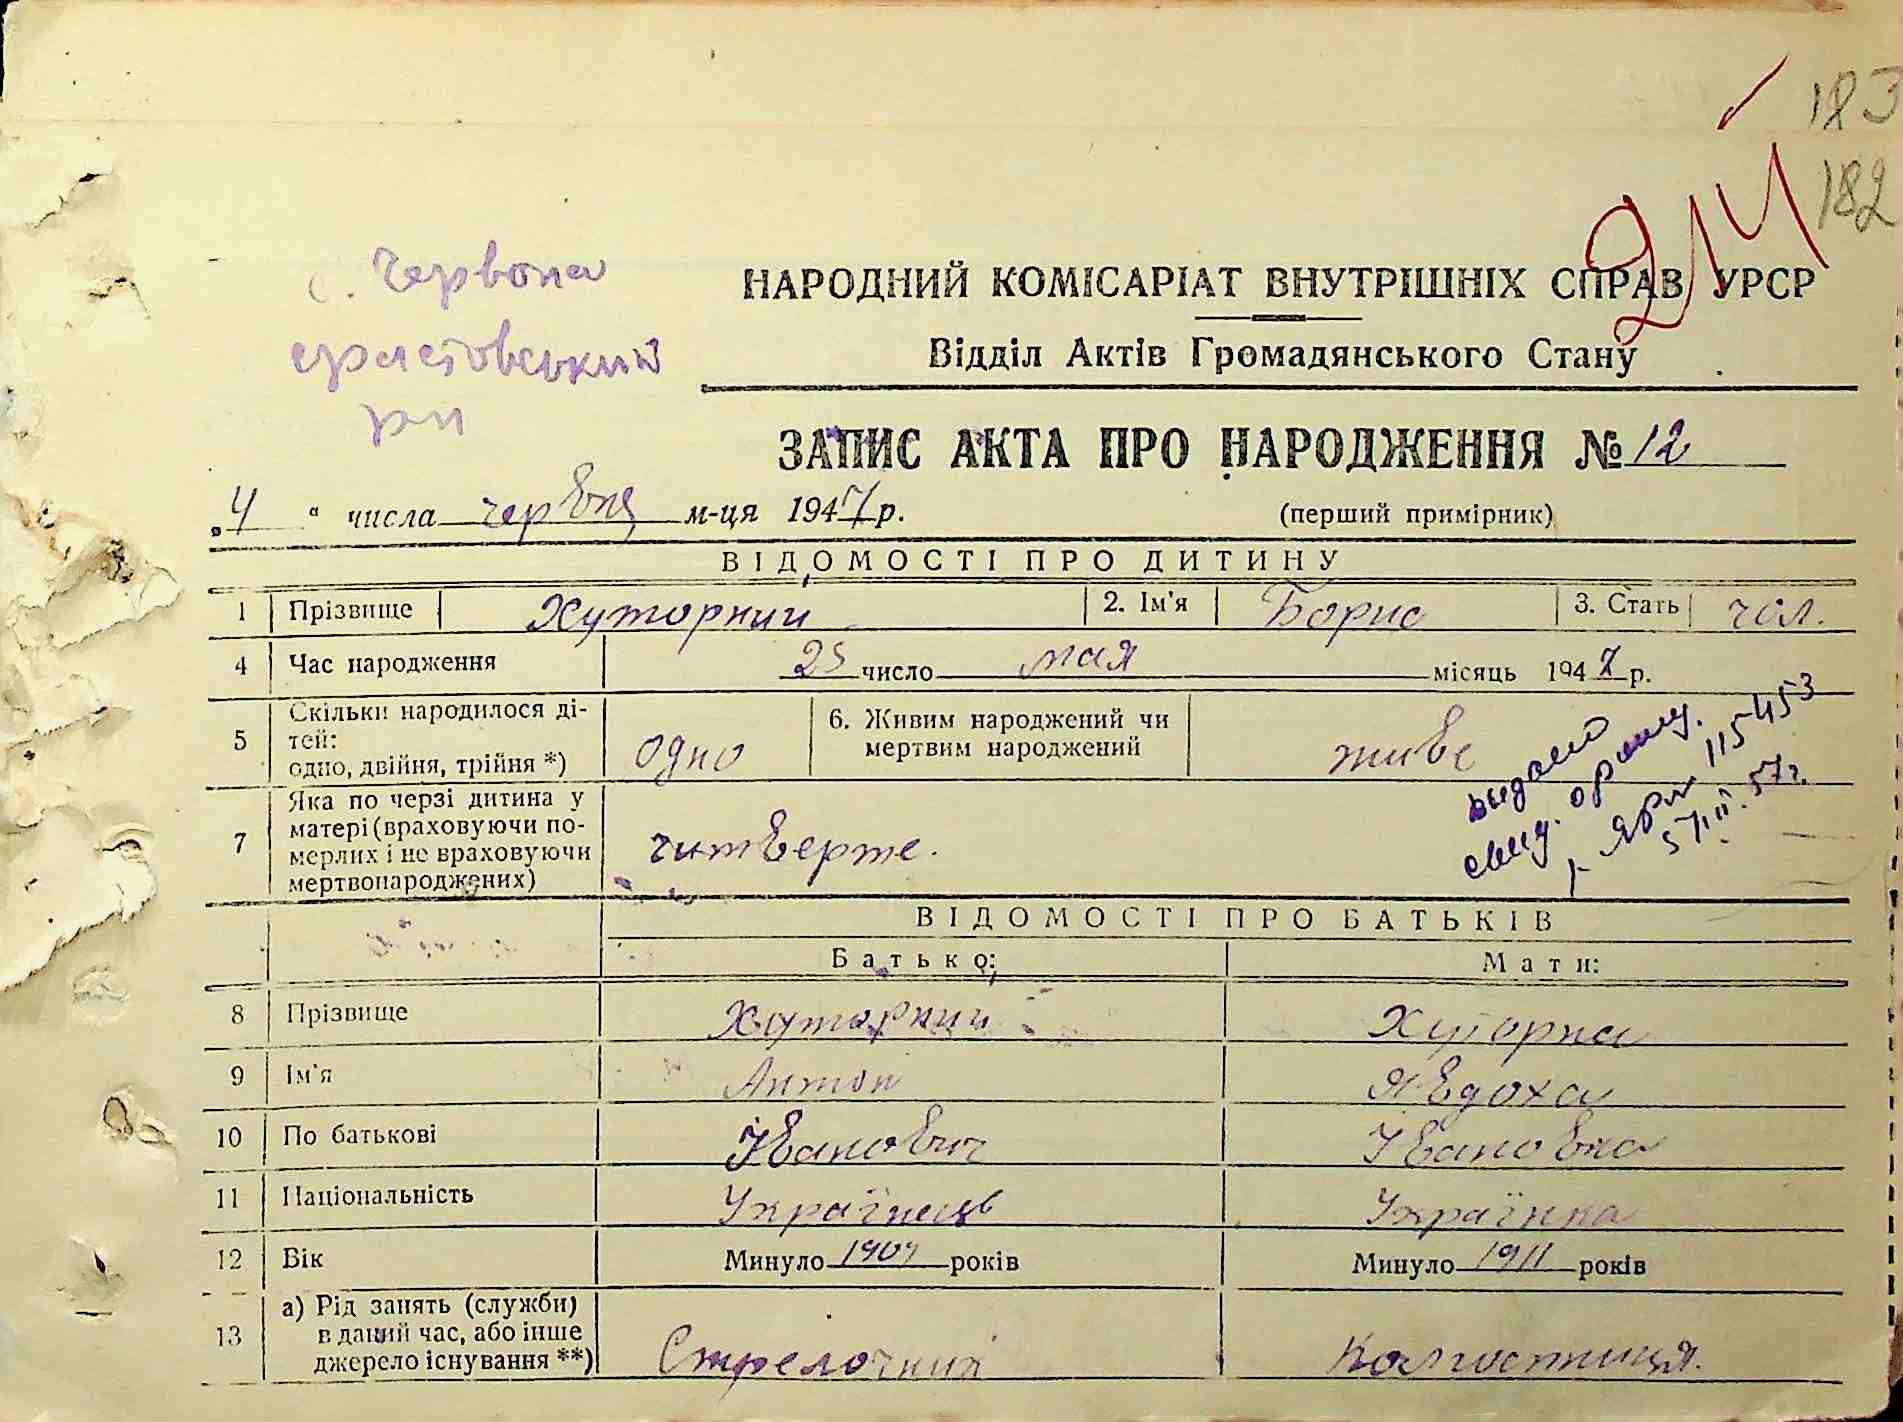 183
182
214
с. Червона
єрастовський
рн
НАРОДНИЙ КОМІСАРІАТ ВНУТРІШНІХ СПРАВ УРСР
Відділ Актів Громадянського Стану
ЗАПИС АКТА ПРО НАРОДЖЕННЯ № 12
„ 4 “ числа червня м-ця 1947 р.
(перший примірник)
ВІДОМОСТІ ПРО ДИТИНУ
1 Прізвище Хуторний 2. Ім'я Борис 3. Стать чол.
4 Час народження 25 число мая місяць 1947 р.
5 Скільки народилося ді-
тей:
одно, двійня, трійня *) одно
6. Живим народжений чи
мертвим народжений живе
7 Яка по черзі дитина у
матері (враховуючи по-
мерлих і не враховуючи
мертвонароджених) читверте.
выдано
115453
57г.
ВІДОМОСТІ ПРО БАТЬКІВ
Батько: Мати:
8 Прізвище Хуторний Хуторна
9 Ім'я Антон Явдоха
10 По батькові Іванович Івановна
11 Національність Українець Українка
12 Вік Минуло 1909 років Минуло 1911 років
13 а) Рід занять (служби)
в даний час, або інше
джерело існування **) Стрелочник Колгостниця.